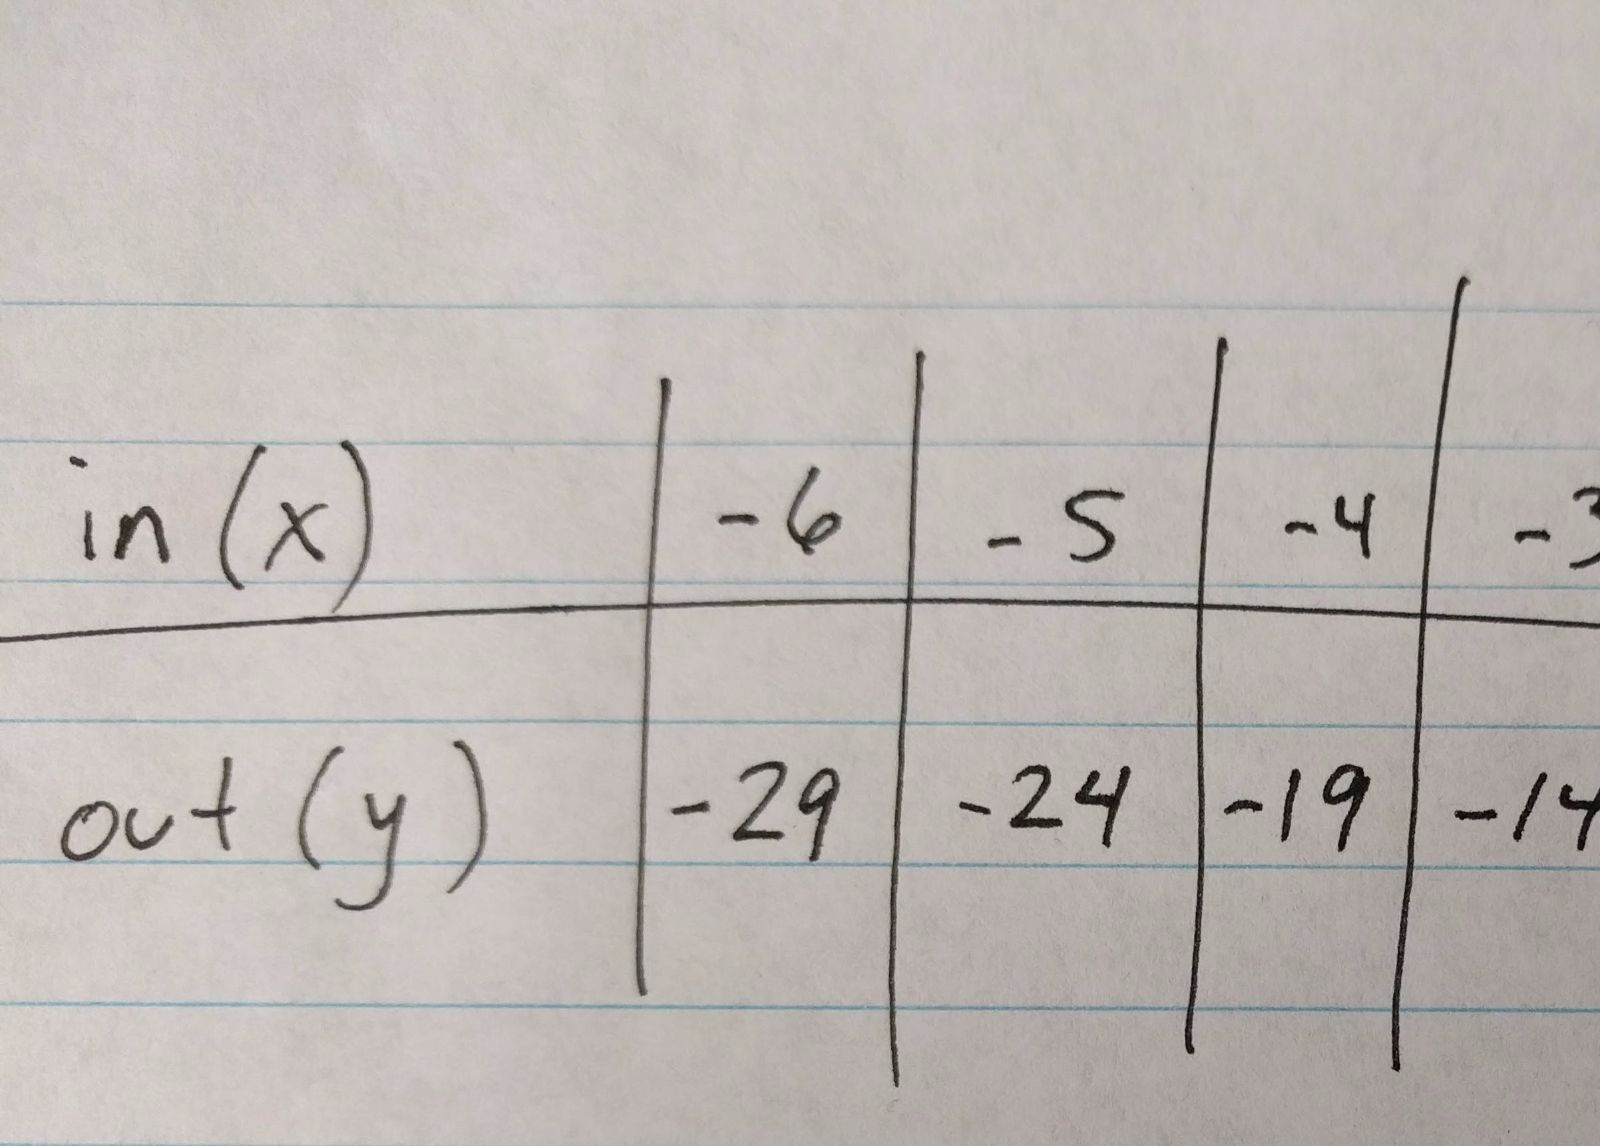 in (x) -6 -5 -4 -3
out (y) -29 -24 -19 -14